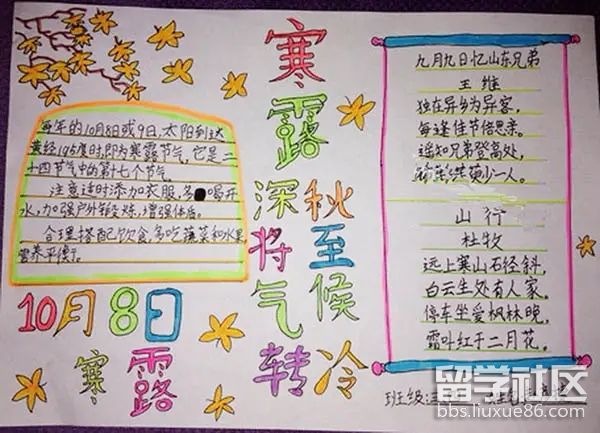 每年的10月8日或9日,太阳到达
黄经195度时,即为寒露节气,它是二
十四节气中的第十七个节气。
注意适时添加衣服,多喝开
水,加强户外锻炼,增强体质。
合理搭配饮食,多吃蔬菜和水果,
营养平衡。
10月8日
寒露
寒露
秋至候冷
深将气转
九月九日忆山东兄弟
王维
独在异乡为异客,
每逢佳节倍思亲。
遥知兄弟登高处,
遍插茱萸少一人。
山行
杜牧
远上寒山石径斜,
白云生处有人家。
停车坐爱枫林晚,
霜叶红于二月花。
班级
留学社区
bbs.liuxue86.com